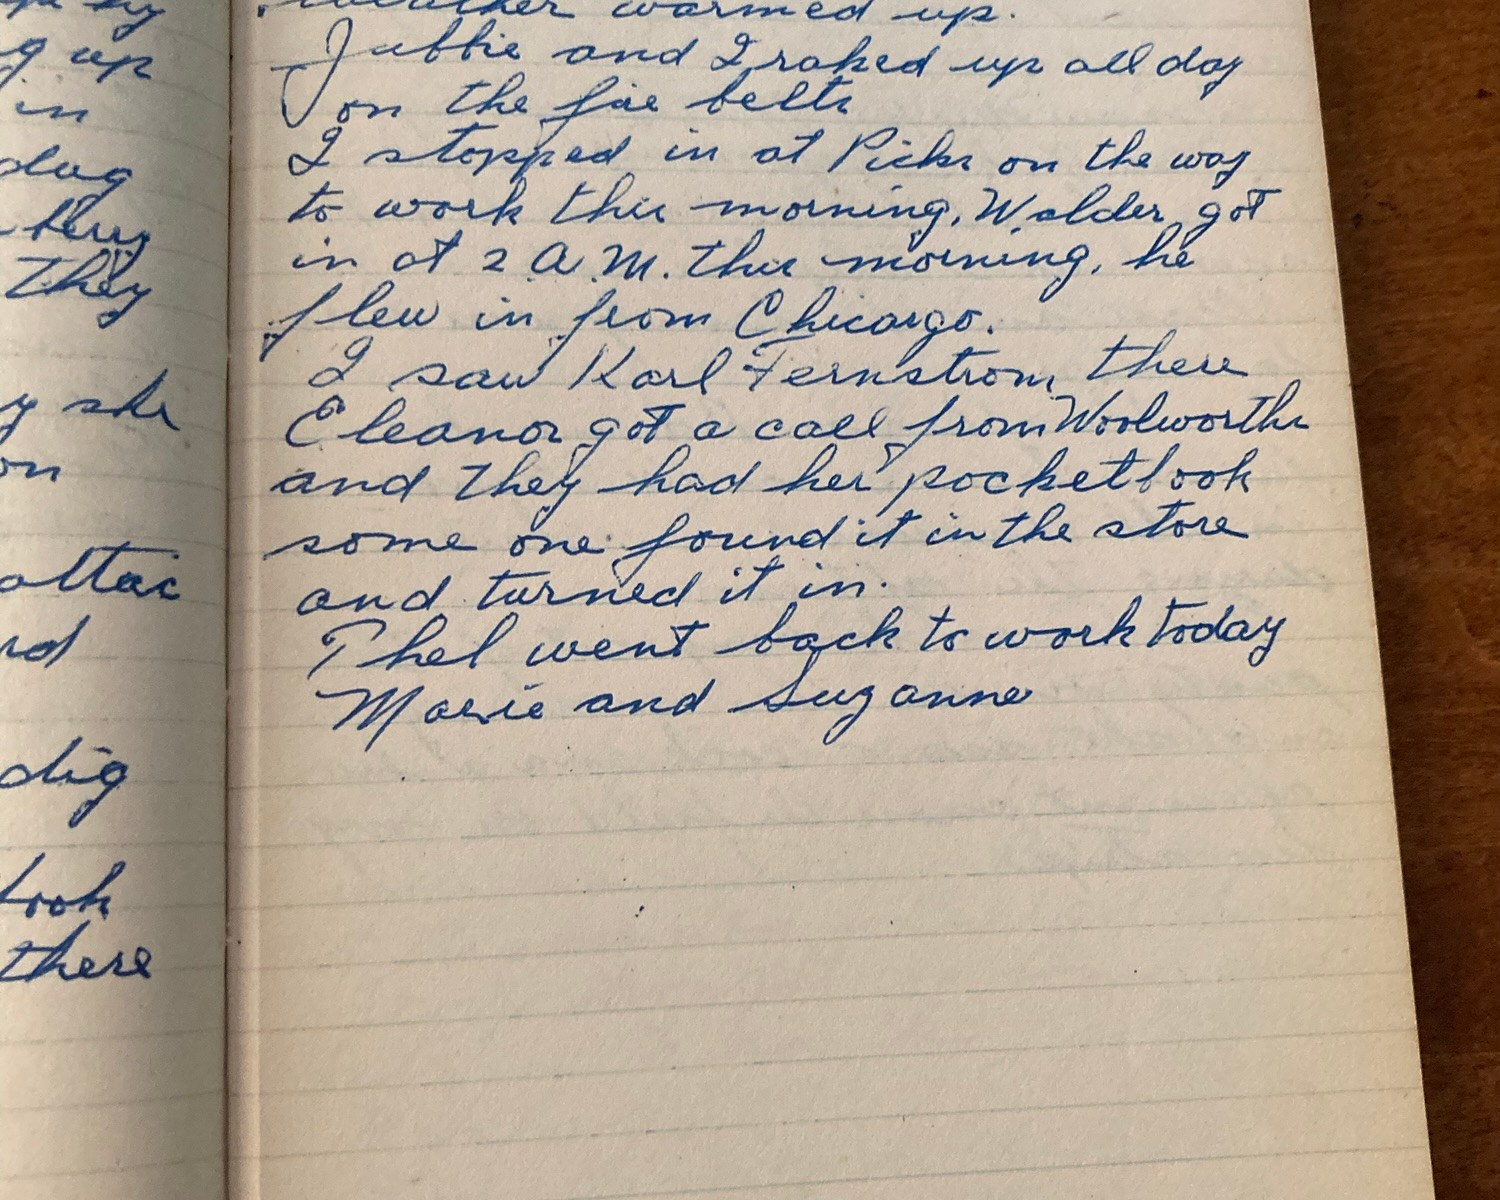 up
in
dug
they
she
on
attic
dig
took
there
weather warmed up.
Jubbie and I raked up all day
on the fire belts
I stopped in at Picks on the way
to work this morning, Walder got
in at 2 A.M. this morning, he
flew in from Chicargo.
I saw Karl Fernstrom there
Eleanor got a call from Woolworths
and they had her pocketbook
some one found it in the store
and turned it in.
Thel went back to work today
Marie and Suzanne